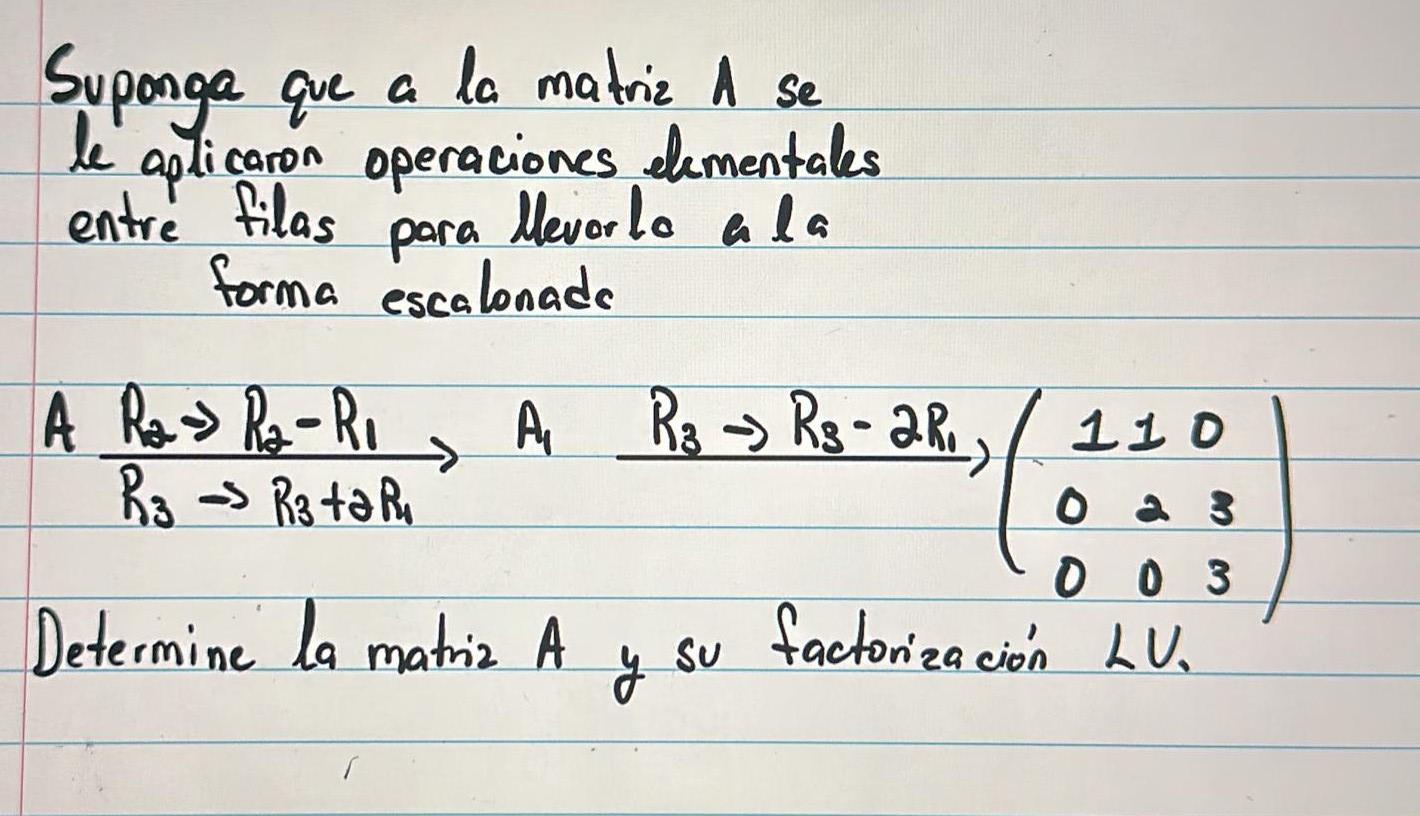 Suponga que a la matriz A se
le aplicaron operaciones elementales
entre filas para llevarla a la
forma escalonada
A R₂ → R₂ - R₁ A₁ R₃ → R₃ - 2R₁ ( 1 1 0
R₃ → R₃ + 2R₁ 0 2 3
0 0 3 )
Determine la matriz A y su factorización LU.